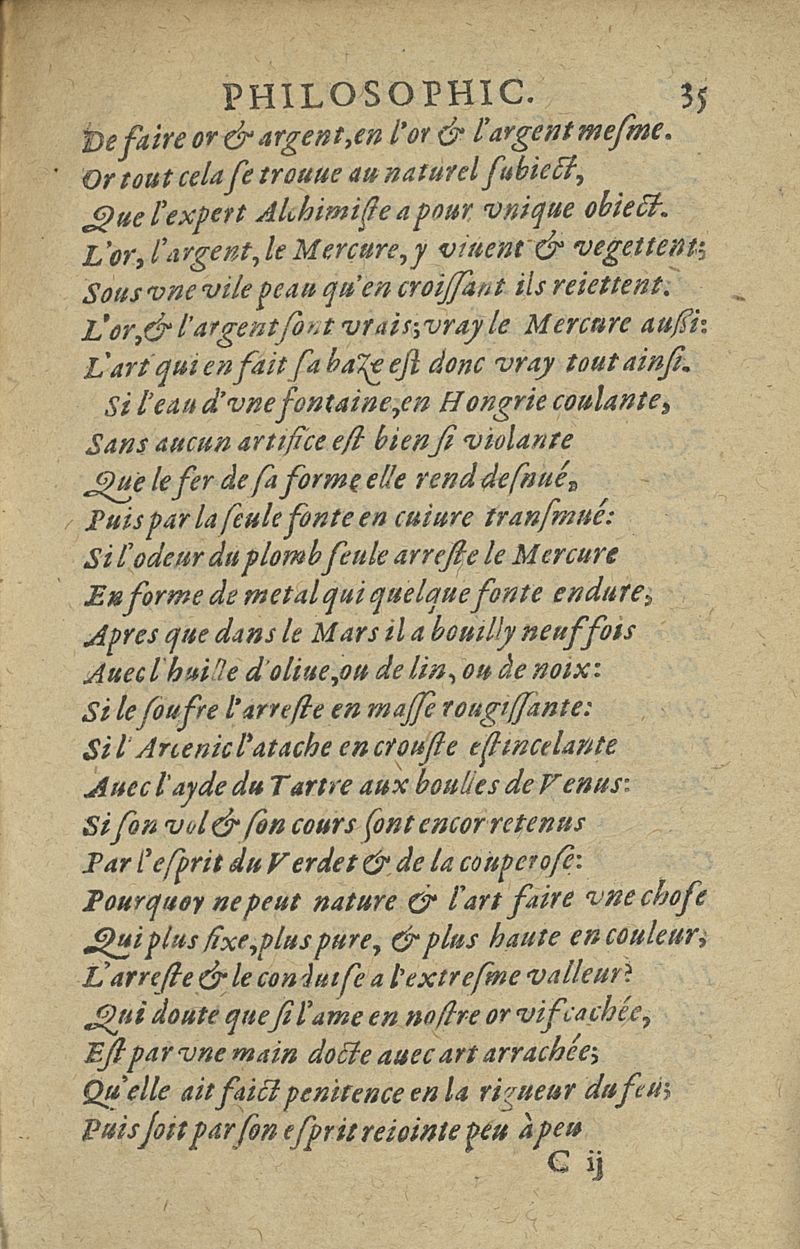 PHILOSOPHIC. 35
De faire or & argent, en l'or & l'argent meſme.
Or tout cela ſe trouue au naturel ſubiect,
Que l'expert Alchimiſte a pour vnique obiect.
L'or, l'argent, le Mercure, y viuent & vegettent;
Sous vne vile peau qu'en croiſſant ils reiettent.
L'or, & l'argent ſont vrais; vray le Mercure auſſi:
L'art qui en fait ſa baze eſt donc vray tout ainſi.
Si l'eau d'vne fontaine, en Hongrie coulante,
Sans aucun artifice eſt bien ſi violante
Que le fer de ſa forme elle rend deſnué,
Puis par la ſeule fonte en cuiure tranſmué:
Si l'odeur du plomb ſeule arreſte le Mercure
En forme de metal qui quelque fonte endure,
Apres que dans le Mars il a bouilly neuf fois
Auec l'huille d'oliue, ou de lin, ou de noix:
Si le ſoufre l'arreſte en maſſe rougiſſante:
Si l'Arcenic l'atache en crouſte eſtincelante
Auec l'ayde du Tartre aux boulles de Venus:
Si ſon vol & ſon cours ſont encor retenus
Par l'eſprit du Verdet & de la couperoſe:
Pourquoy ne peut nature & l'art faire vne choſe
Qui plus fixe, plus pure, & plus haute en couleur,
L'arreſte & le conduiſe a l'extreſme valleur?
Qui doute que ſi l'ame en noſtre or vif cachée,
Eſt par vne main docte auec art arrachée;
Qu'elle ait faict penitence en la rigueur du feu;
Puis ſoit par ſon eſprit reiointe peu à peu
C ij